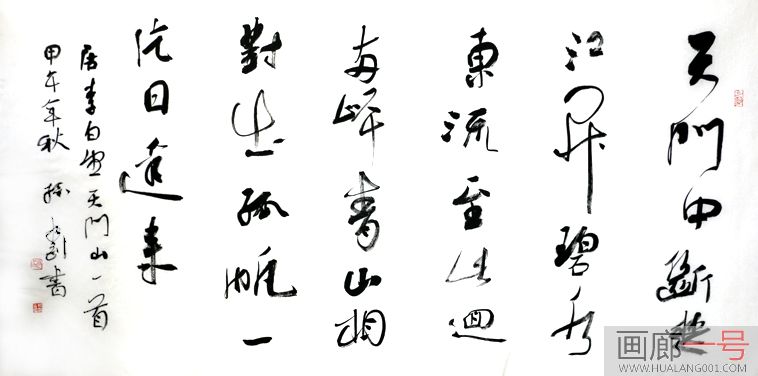 天門中斷楚
江開碧水
東流至此迴
兩岸青山相
對出孤帆一
片日邊來
唐李白望天門山一首
甲午年秋 書
画廊一号
WWW.HUALANG001.COM